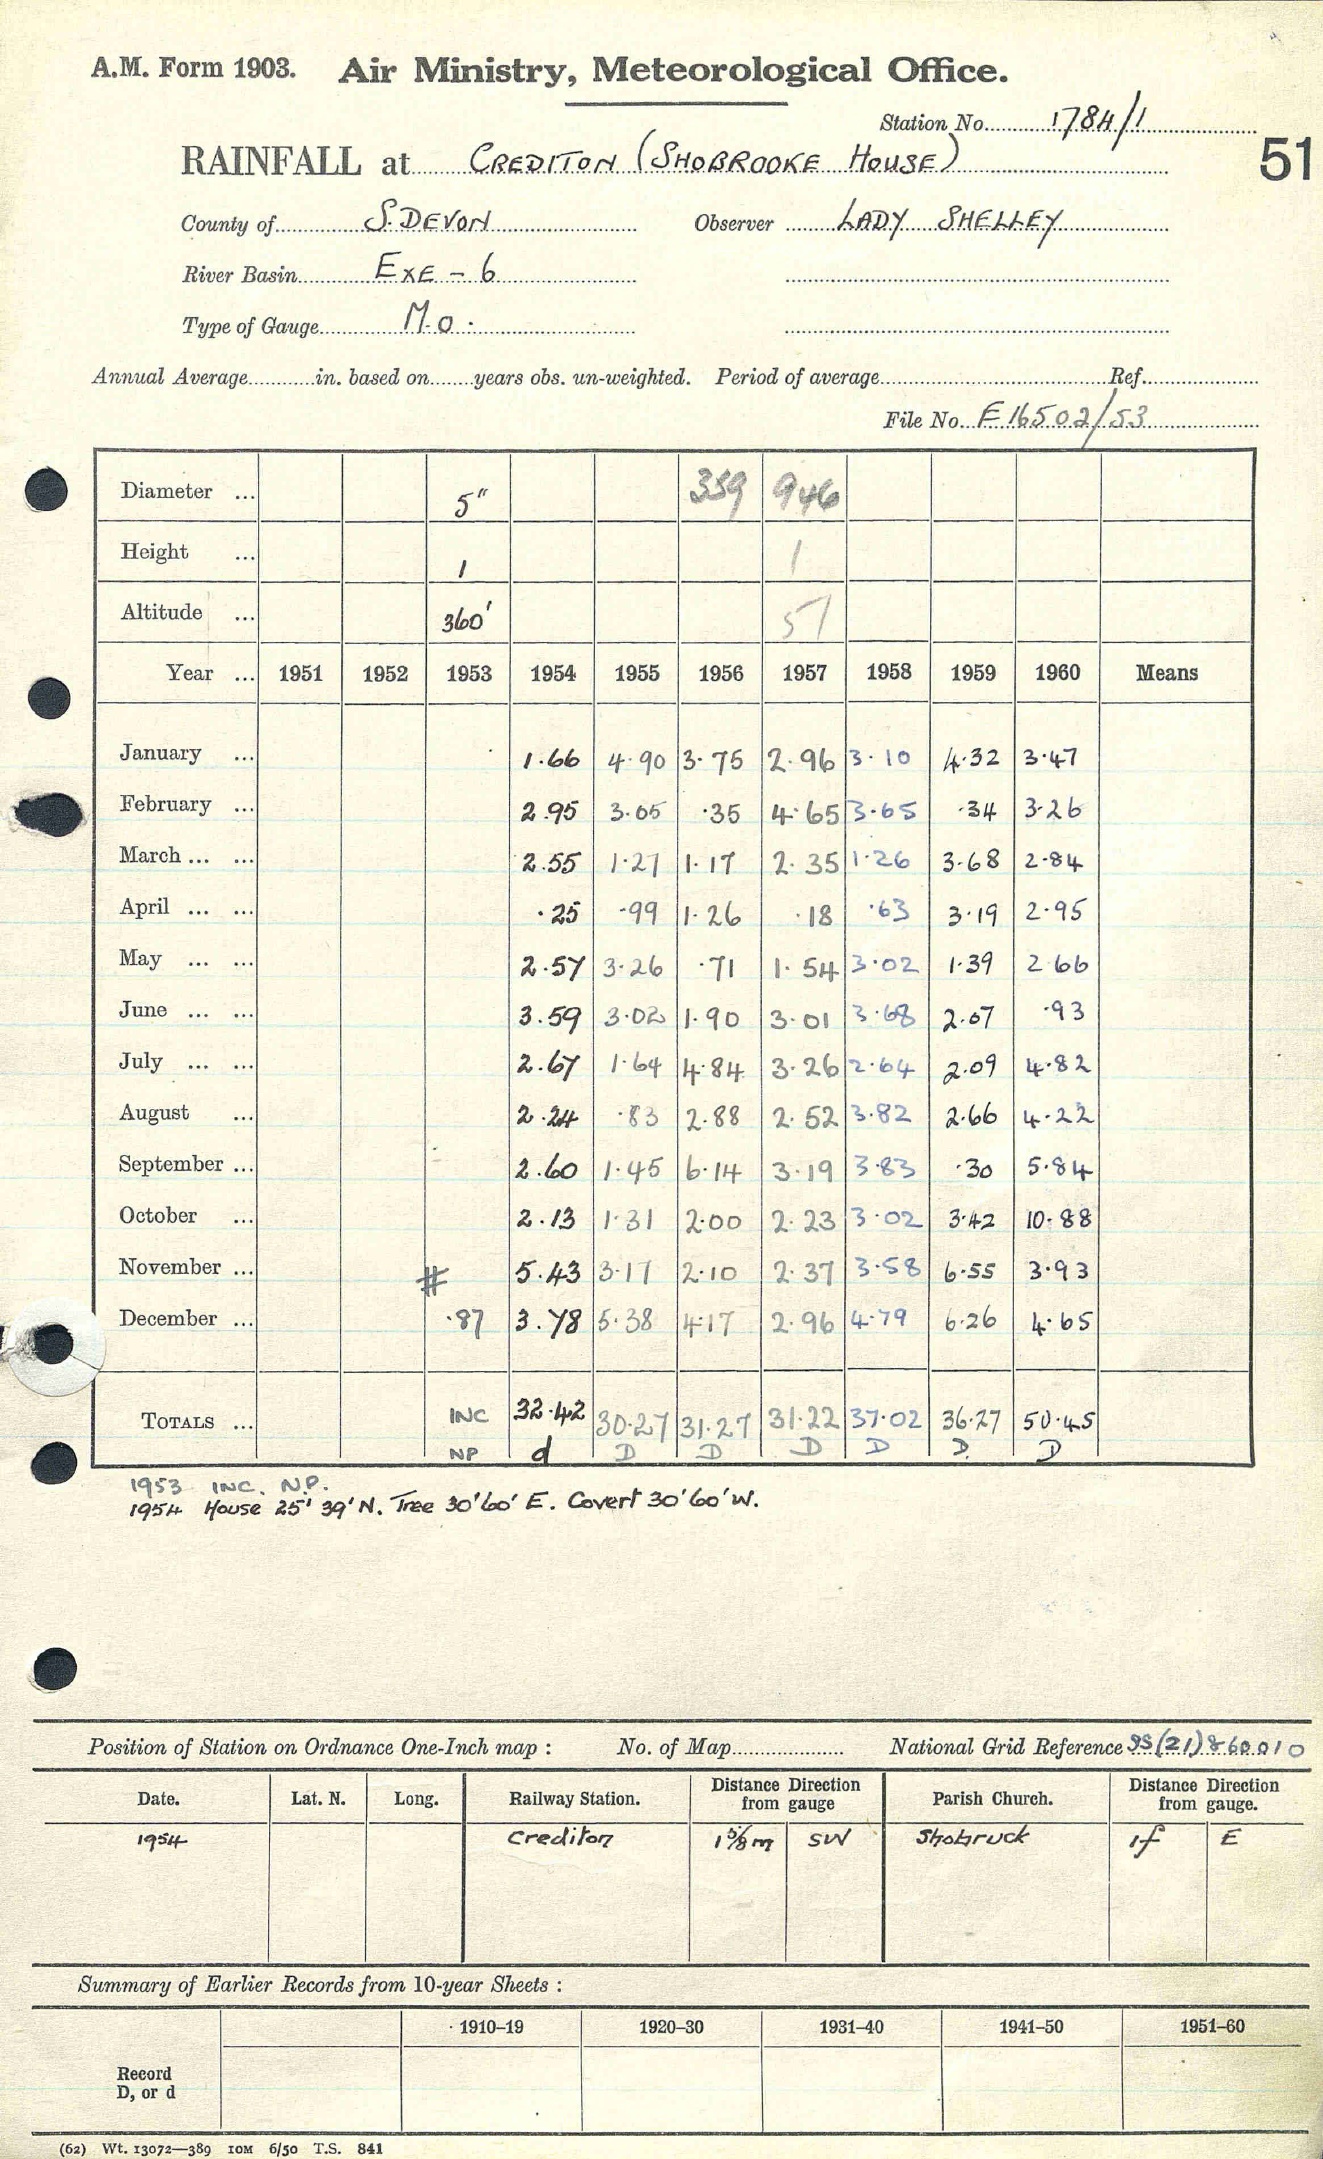 A.M. Form 1903. Air Ministry, Meteorological Office.
Station No. 1784/1
51
RAINFALL at CREDITON (SHOBROOKE HOUSE)
County of S. DEVON Observer LADY SHELLEY
River Basin EXE - 6
Type of Gauge M.O.
Annual Average in. based on years obs. un-weighted. Period of average Ref.
File No. F 16502/53
Diameter ... 5" 359 946
Height ... 1 1
Altitude ... 360' 51
Year ... 1951 1952 1953 1954 1955 1956 1957 1958 1959 1960 Means
January ... 1.66 4.90 3.75 2.96 3.10 4.32 3.47
February ... 2.95 3.05 .35 4.65 3.65 .34 3.26
March ... ... 2.55 1.27 1.17 2.35 1.26 3.68 2.84
April ... ... .25 .99 1.26 .18 .63 3.19 2.95
May ... ... 2.57 3.26 .71 1.54 3.02 1.39 2 66
June ... ... 3.59 3.02 1.90 3.01 3.68 2.07 .93
July ... ... 2.67 1.64 4.84 3.26 2.64 2.09 4.82
August ... 2.24 .83 2.88 2.52 3.82 2.66 4.22
September ... 2.60 1.45 6.14 3.19 3.83 .30 5.84
October ... 2.13 1.31 2.00 2.23 3.02 3.42 10.88
November ... # 5.43 3.17 2.10 2.37 3.58 6.55 3.93
December ... .87 3.78 5.38 4.17 2.96 4.79 6.26 4.65
TOTALS ... INC 32.42 30.27 31.27 31.22 37.02 36.27 50.45
NP d D D D D D. D
1953 INC. N.P.
1954 House 25' 39' N. Tree 30' 60' E. Covert 30' 60' W.
Position of Station on Ordnance One-Inch map : No. of Map National Grid Reference SS (21) 860010
Date. Lat. N. Long. Railway Station. Distance Direction from gauge Parish Church. Distance Direction from gauge.
1954 Crediton 1 5/8 m SW Shobruck 1f E
Summary of Earlier Records from 10-year Sheets :
1910–19 1920–30 1931–40 1941–50 1951–60
Record
D, or d
(62) Wt. 13072—389 10M 6/50 T.S. 841